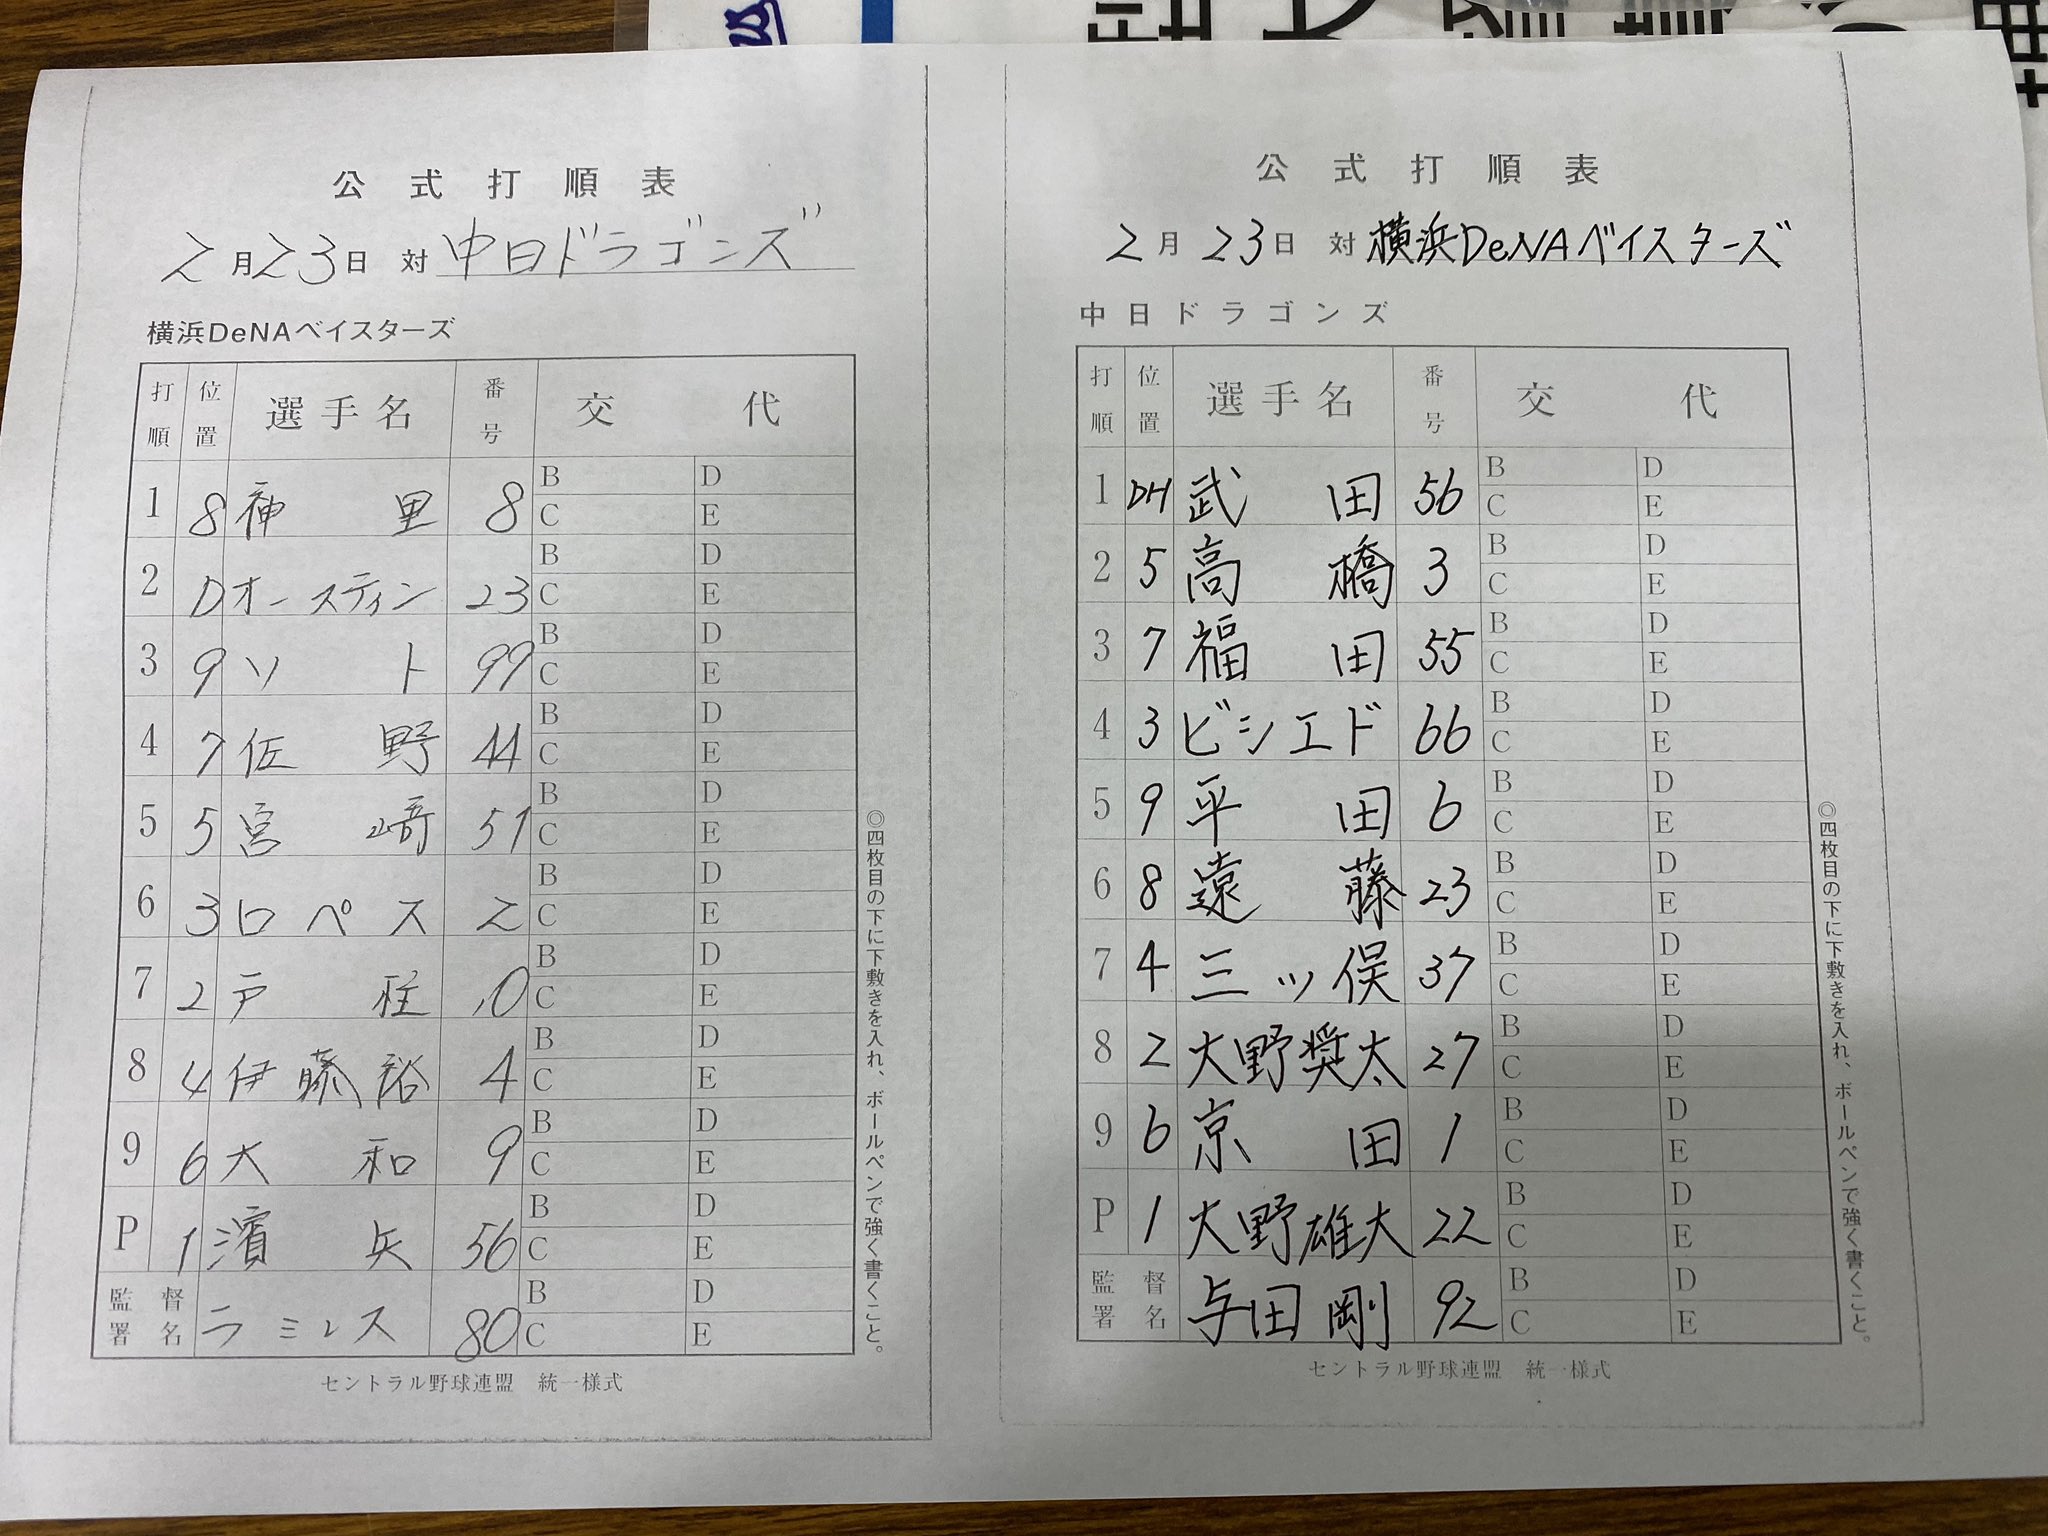 公式打順表
2月23日 対 中日ドラゴンズ
横浜DeNAベイスターズ
打順 位置 選手名 番号 交代
1 8 神里 8 B D C E
2 D オースティン 23 B D C E
3 9 ソト 99 B D C E
4 7 佐野 44 B D C E
5 5 宮﨑 51 B D C E
6 3 ロペス 2 B D C E
7 2 戸柱 10 B D C E
8 4 伊藤裕 4 B D C E
9 6 大和 9 B D C E
P 1 濵矢 56 B D C E
監督署名 ラミレス 80 B D C E
◎四枚目の下に下敷きを入れ、ボールペンで強く書くこと。
セントラル野球連盟 統一様式
公式打順表
2月23日 対 横浜DeNAベイスターズ
中日ドラゴンズ
打順 位置 選手名 番号 交代
1 DH 武田 56 B D C E
2 5 高橋 3 B D C E
3 7 福田 55 B D C E
4 3 ビシエド 66 B D C E
5 9 平田 6 B D C E
6 8 遠藤 23 B D C E
7 4 三ッ俣 37 B D C E
8 2 大野奨太 27 B D C E
9 6 京田 1 B D C E
P 1 大野雄大 22 B D C E
監督署名 与田剛 92 B D C E
◎四枚目の下に下敷きを入れ、ボールペンで強く書くこと。
セントラル野球連盟 統一様式